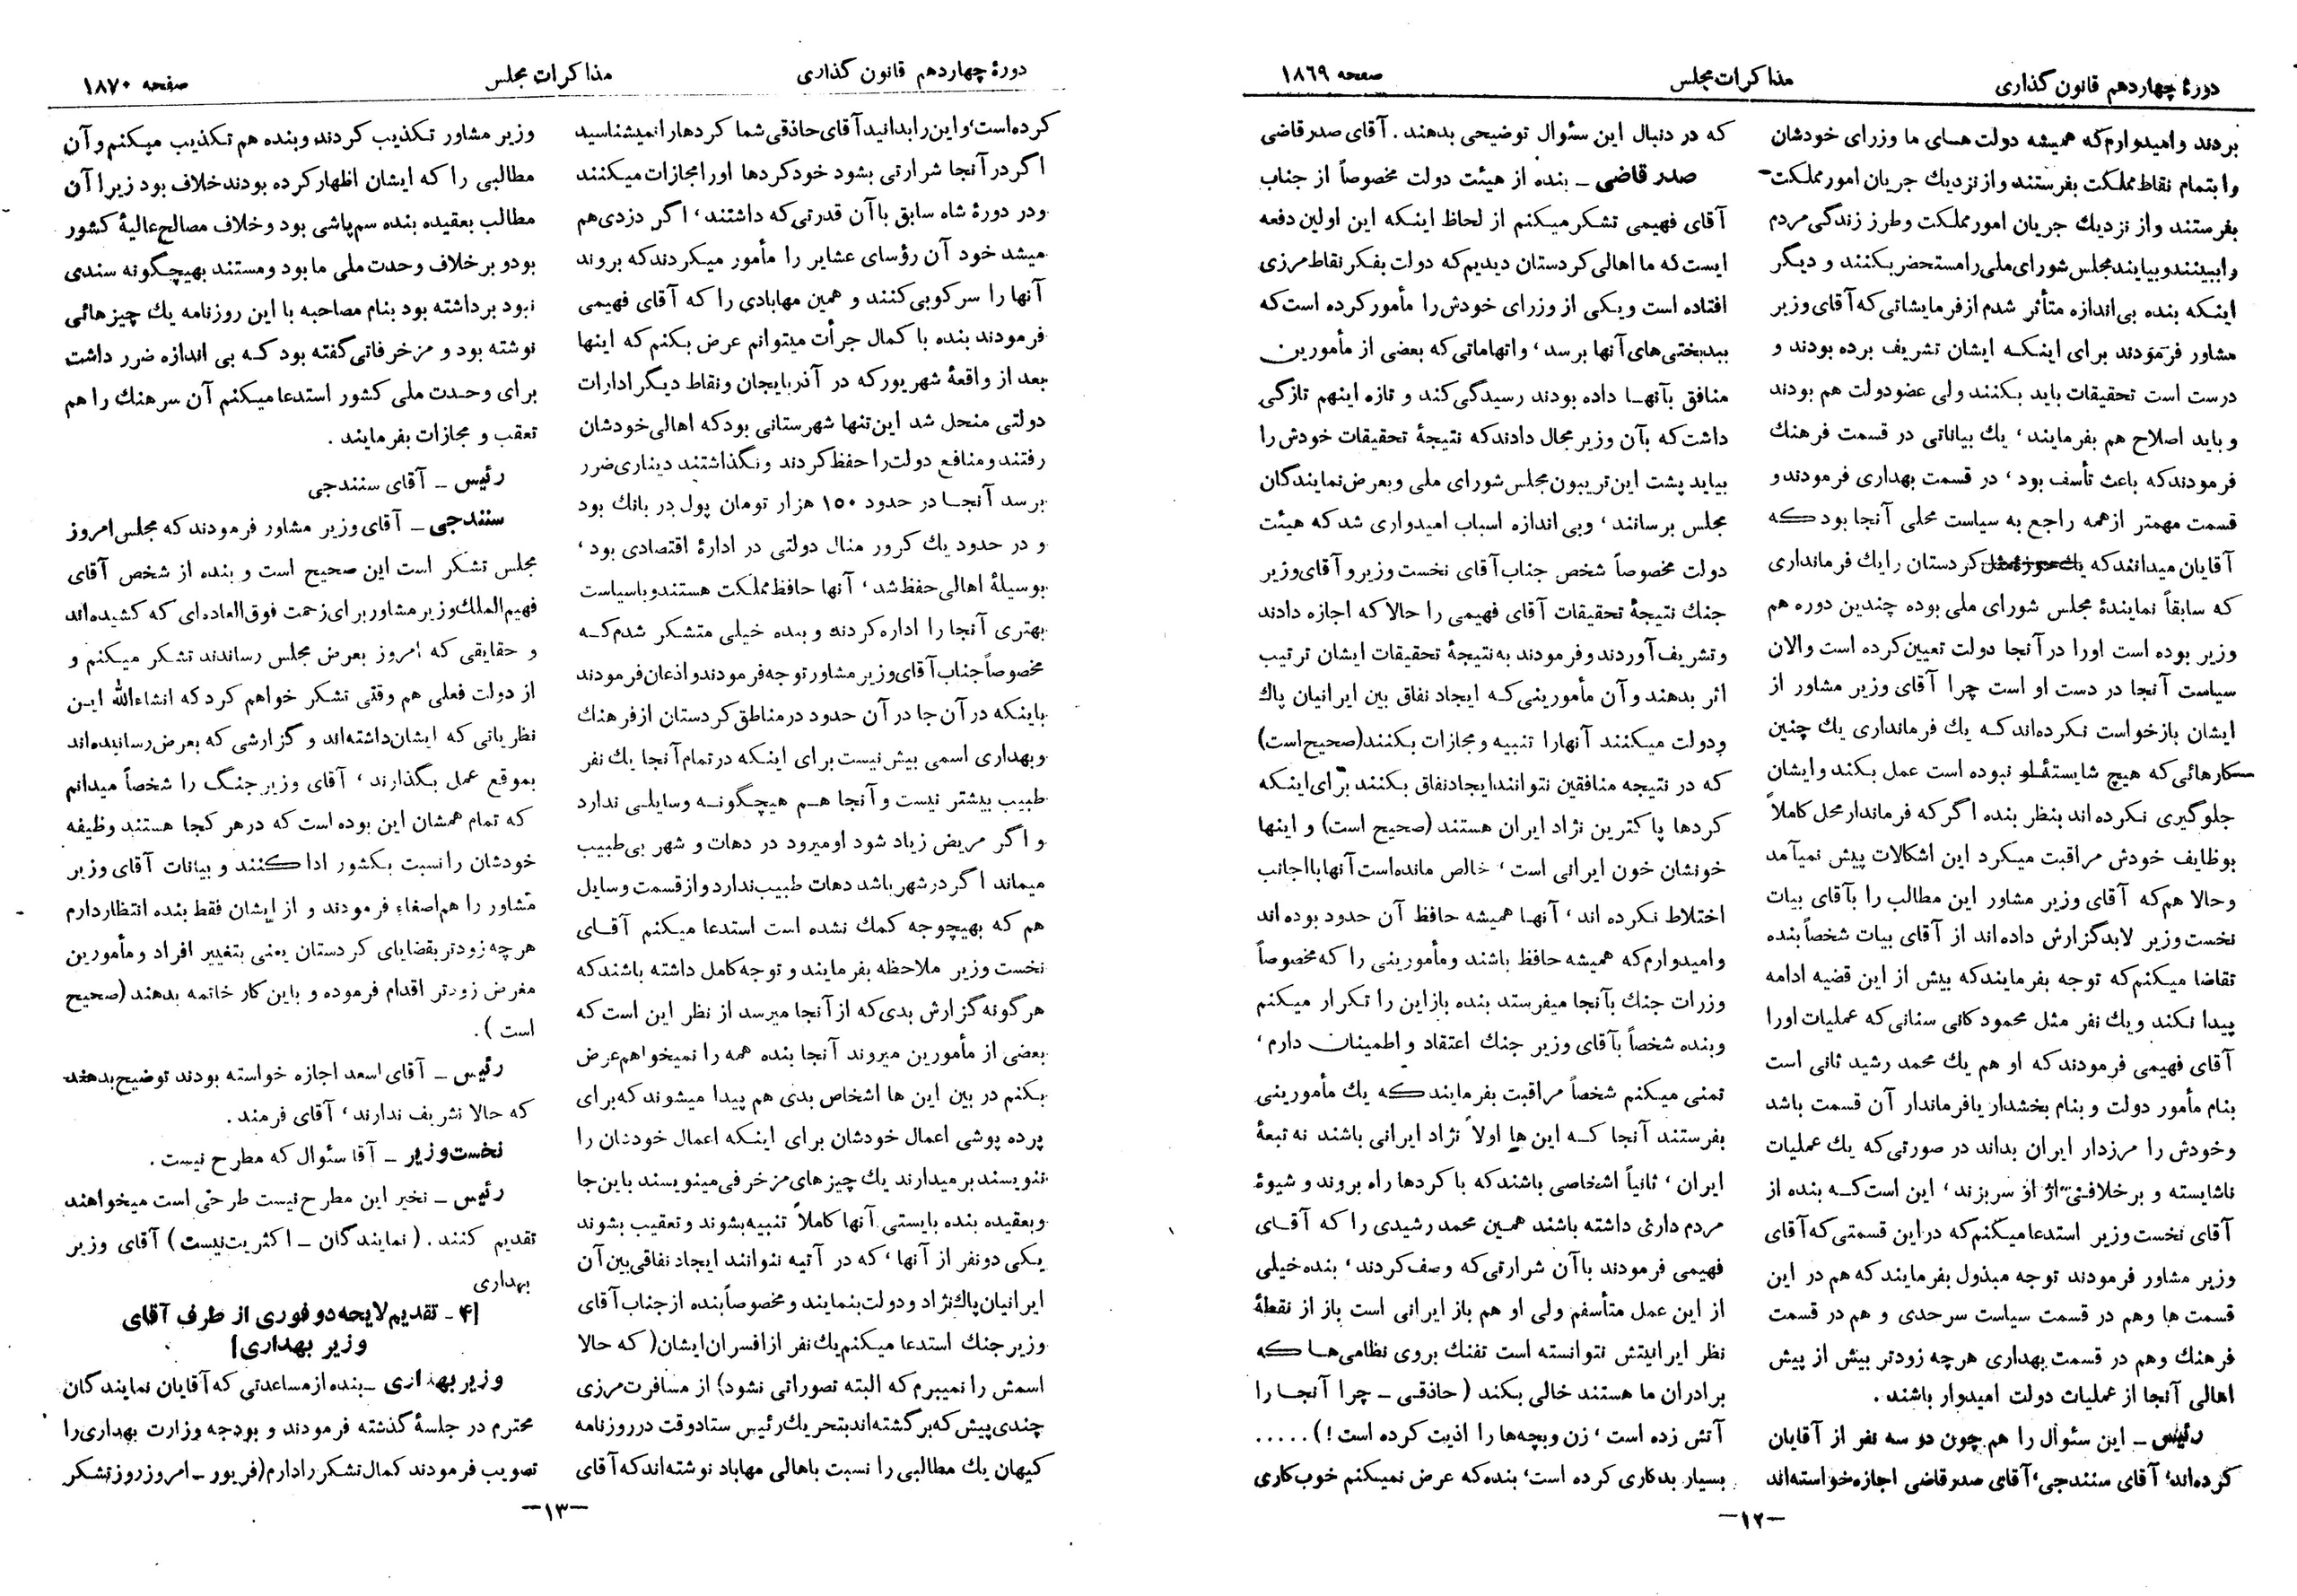 دورهٔ چهاردهم قانون گذاری
مذاکرات مجلس
صفحه ۱۸۶۹
بردند وامیدوارم که همیشه دولت های ما وزرای خودشان
را بتمام نقاط مملکت بفرستند و از نزدیك جریان امور مملکت
بفرستند و از نزدیك جریان امور مملکت و طرز زندگی مردم
را ببینند و بیایند مجلس شورای ملی را مستحضر بکنند و دیگر
اینکه بنده بی‌اندازه متأثر شدم از فرمایشاتی که آقای وزیر
مشاور فرمودند برای اینکه ایشان تشریف برده بودند و
درست است تحقیقات باید بکنند ولی عضو دولت هم بودند
و باید اصلاح هم بفرمایند، یك بیاناتی در قسمت فرهنك
فرمودند که باعث تأسف بود، در قسمت بهداری فرمودند و
قسمت مهمتر از همه راجع به سیاست محلی آنجا بود که
آقایان میدانند که یك کردستان را یك فرمانداری
که سابقاً نمایندهٔ مجلس شورای ملی بوده چندین دوره هم
وزیر بوده است اورا در آنجا دولت تعیین کرده است والان
سیاست آنجا در دست او است چرا آقای وزیر مشاور از
ایشان بازخواست نکرده‌اند که یك فرمانداری یك چنین
کارهائی که هیچ شایستهٔ او نبوده است عمل بکند و ایشان
جلوگیری نکرده اند بنظر بنده اگر که فرماندار محل کاملاً
بوظایف خودش مراقبت میکرد این اشکالات پیش نمیآمد
وحالا هم که آقای وزیر مشاور این مطالب را بآقای بیات
نخست وزیر لابد گزارش داده‌اند از آقای بیات شخصاً بنده
تقاضا میکنم که توجه بفرمایند که بیش از این قضیه ادامه
پیدا نکند و یك نفر مثل محمود کانی سنانی که عملیات اورا
آقای فهیمی فرمودند که او هم یك محمد رشید ثانی است
بنام مأمور دولت و بنام بخشدار یا فرماندار آن قسمت باشد
وخودش را مرزدار ایران بداند در صورتی که یك عملیات
ناشایسته و برخلافی از او سر بزند، این است که بنده از
آقای نخست وزیر استدعا میکنم که در این قسمتی که آقای
وزیر مشاور فرمودند توجه مبذول بفرمایند که هم در این
قسمت ها وهم در قسمت سیاست سرحدی و هم در قسمت
فرهنك وهم در قسمت بهداری هرچه زودتر بیش از پیش
اهالی آنجا از عملیات دولت امیدوار باشند.
رئیس ـ این سئوال را هم چون دو سه نفر از آقایان
کرده‌اند، آقای سنندجی، آقای صدرقاضی اجازه خواسته‌اند
که در دنبال این سئوال توضیحی بدهند. آقای صدرقاضی
صدر قاضی ـ بنده از هیئت دولت مخصوصاً از جناب
آقای فهیمی تشکر میکنم از لحاظ اینکه این اولین دفعه
ایست که ما اهالی کردستان دیدیم که دولت بفکر نقاط مرزی
افتاده است و یکی از وزرای خودش را مأمور کرده است که
ببدبختی‌های آنها برسد، و اتهاماتی که بعضی از مأمورین
منافق بآنها داده بودند رسیدگی کند و تازه اینهم تازگی
داشت که بآن وزیر مجال دادند که نتیجهٔ تحقیقات خودش را
بیاید پشت این تریبون مجلس شورای ملی و بعرض نمایندگان
مجلس برسانند، وبی اندازه اسباب امیدواری شد که هیئت
دولت مخصوصاً شخص جناب آقای نخست وزیر و آقای وزیر
جنك نتیجهٔ تحقیقات آقای فهیمی را حالا که اجازه دادند
و تشریف آوردند و فرمودند به نتیجهٔ تحقیقات ایشان ترتیب
اثر بدهند و آن مأمورینی که ایجاد نفاق بین ایرانیان پاك
و دولت میکنند آنهارا تنبیه و مجازات بکنند (صحیح است)
که در نتیجه منافقین نتوانند ایجاد نفاق بکنند برای اینکه
کردها پاکترین نژاد ایران هستند (صحیح است) و اینها
خونشان خون ایرانی است، خالص مانده است آنها با اجانب
اختلاط نکرده اند، آنها همیشه حافظ آن حدود بوده اند
وامیدوارم که همیشه حافظ باشند و مأمورینی را که مخصوصاً
وزرات جنك بآنجا میفرستد بنده باز این را تکرار میکنم
وبنده شخصاً بآقای وزیر جنك اعتقاد و اطمینان دارم،
تمنی میکنم شخصاً مراقبت بفرمایند که یك مأمورینی
بفرستند آنجا که این ها اولاً نژاد ایرانی باشند نه تبعهٔ
ایران، ثانیاً اشخاصی باشند که با کردها راه بروند و شیوهٔ
مردم داری داشته باشند همین محمد رشیدی را که آقای
فهیمی فرمودند با آن شرارتی که وصف کردند، بنده خیلی
از این عمل متأسفم ولی او هم باز ایرانی است باز از نقطهٔ
نظر ایرانیتش نتوانسته است تفنك بروی نظامی‌ها که
برادران ما هستند خالی بکند (حاذقی ـ چرا آنجا را
آتش زده است، زن و بچه‌ها را اذیت کرده است!).....
بسیار بدکاری کرده است، بنده که عرض نمیکنم خوب کاری
ـ۱۲ـ
دورهٔ چهاردهم قانون گذاری
مذاکرات مجلس
صفحه ۱۸۷۰
کرده است، و این را بدانید آقای حاذقی شما کردهارا نمیشناسید
اگر در آنجا شرارتی بشود خود کردها اورا مجازات میکنند
ودر دورهٔ شاه سابق با آن قدرتی که داشتند، اگر دزدی هم
میشد خود آن رؤسای عشایر را مأمور میکردند که بروند
آنها را سرکوبی کنند و همین مهابادی را که آقای فهیمی
فرمودند بنده با کمال جرأت میتوانم عرض بکنم که اینها
بعد از واقعهٔ شهریور که در آذربایجان و نقاط دیگر ادارات
دولتی منحل شد این تنها شهرستانی بود که اهالی خودشان
رفتند و منافع دولت را حفظ کردند و نگذاشتند دیناری ضرر
برسد آنجا در حدود ۱۵۰ هزار تومان پول در بانك بود
و در حدود یك کرور منال دولتی در ادارهٔ اقتصادی بود،
بوسیلهٔ اهالی حفظ شد، آنها حافظ مملکت هستند و باسیاست
بهتری آنجا را اداره کردند و بنده خیلی متشکر شدم که
مخصوصاً جناب آقای وزیر مشاور توجه فرمودند و اذعان فرمودند
باینکه در آن جا در آن حدود در مناطق کردستان از فرهنك
و بهداری اسمی بیش نیست برای اینکه در تمام آنجا یك نفر
طبیب بیشتر نیست و آنجا هم هیچگونه وسایلی ندارد
و اگر مریض زیاد شود او میرود در دهات و شهر بی طبیب
میماند اگر در شهر باشد دهات طبیب ندارد و از قسمت وسایل
هم که بهیچوجه کمك نشده است استدعا میکنم آقای
نخست وزیر ملاحظه بفرمایند و توجه کامل داشته باشند که
هر گونه گزارش بدی که از آنجا میرسد از نظر این است که
بعضی از مأمورین میروند آنجا بنده همه را نمیخواهم عرض
بکنم در بین این ها اشخاص بدی هم پیدا میشوند که برای
پرده پوشی اعمال خودشان برای اینکه اعمال خودشان را
ننویسند بر میدارند یك چیزهای مزخرفی مینویسند باین جا
و بعقیده بنده بایستی آنها کاملاً تنبیه بشوند و تعقیب بشوند
یکی دو نفر از آنها، که در آتیه نتوانند ایجاد نفاقی بین آن
ایرانیان پاك نژاد و دولت بنمایند و مخصوصاً بنده از جناب آقای
وزیر جنك استدعا میکنم یك نفر از افسران ایشان (که حالا
اسمش را نمیبرم که البته تصوراتی نشود) از مسافرت مرزی
چندی پیش که برگشته اند بتحریك رئیس ستاد وقت در روزنامه
کیهان یك مطالبی را نسبت باهالی مهاباد نوشته‌اند که آقای
وزیر مشاور تکذیب کردند و بنده هم تکذیب میکنم و آن
مطالبی را که ایشان اظهار کرده بودند خلاف بود زیرا آن
مطالب بعقیده بنده سم پاشی بود و خلاف مصالح عالیهٔ کشور
بود و برخلاف وحدت ملی ما بود و مستند بهیچگونه سندی
نبود برداشته بود بنام مصاحبه با این روزنامه یك چیزهائی
نوشته بود و مزخرفاتی گفته بود که بی اندازه ضرر داشت
برای وحدت ملی کشور استدعا میکنم آن سرهنك را هم
تعقب و مجازات بفرمایند.
رئیس ـ آقای سنندجی
سنندجی ـ آقای وزیر مشاور فرمودند که مجلس امروز
مجلس تشکر است این صحیح است و بنده از شخص آقای
فهیم الملك وزیر مشاور برای زحمت فوق‌العاده‌ای که کشیده‌اند
و حقایقی که امروز بعرض مجلس رساندند تشکر میکنم و
از دولت فعلی هم وقتی تشکر خواهم کرد که انشاءالله این
نظریاتی که ایشان داشته‌اند و گزارشی که بعرض رسانیده‌اند
بموقع عمل بگذارند، آقای وزیر جنگ را شخصاً میدانم
که تمام همشان این بوده است که در هر کجا هستند وظیفه
خودشان را نسبت بکشور ادا کنند و بیانات آقای وزیر
مشاور را هم اصغاء فرمودند و از ایشان فقط بنده انتظار دارم
هر چه زودتر بقضایای کردستان یعنی بتغییر افراد و مأمورین
مغرض زودتر اقدام فرموده و باین کار خاتمه بدهند (صحیح
است).
رئیس ـ آقای اسعد اجازه خواسته بودند توضیح بدهند
که حالا تشریف ندارند، آقای فرمند.
نخست وزیر ـ آقا سئوال که مطرح نیست.
رئیس ـ نخیر این مطرح نیست طرحی است میخواهند
تقدیم کنند. (نمایندگان ـ اکثریت نیست) آقای وزیر
بهداری
[۴ـ تقدیم لایحه دو فوری از طرف آقای
وزیر بهداری]
وزیر بهداری ـ بنده از مساعدتی که آقایان نمایندگان
محترم در جلسهٔ گذشته فرمودند و بودجه وزارت بهداری را
تصویب فرمودند کمال تشکر را دارم (فریور ـ امروز روز تشکر
ـ۱۳ـ